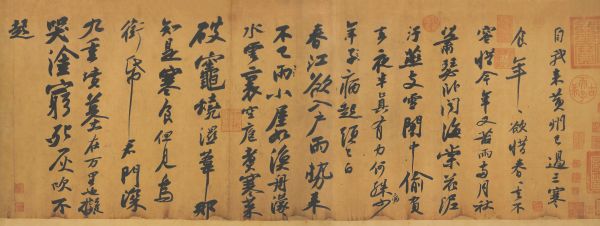 自我來黃州已過三寒
食年〻欲惜春〻去不
容惜今年又苦雨兩月秋
蕭瑟卧聞海棠花泥
汙燕支雪闇中偷負
去夜半真有力何殊病少
年子病起頭已白
春江欲入戶雨勢來
不已雨小屋如漁舟濛〻
水雲裏空庖煮寒菜
破竈燒濕葦那
知是寒食但見烏
銜帋君門深
九重墳墓在万里也擬
哭塗窮死灰吹不
起